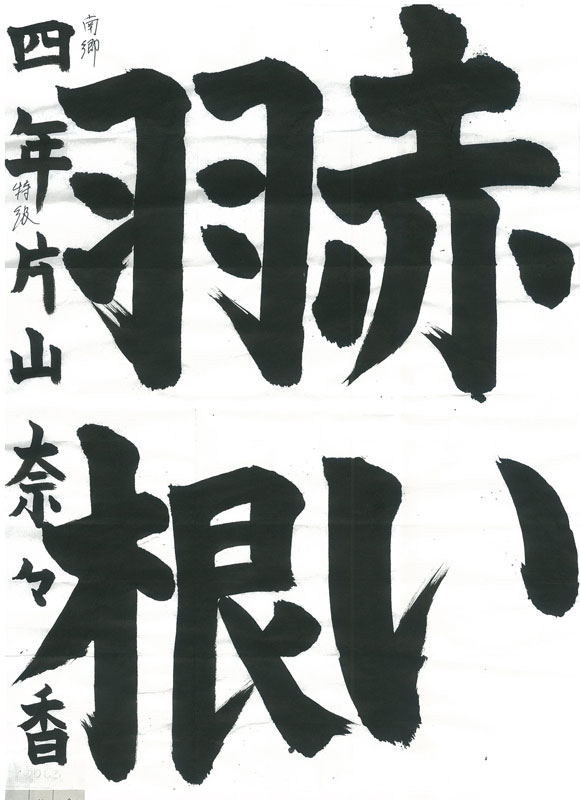 赤い
羽根
南郷
四年 片山 奈々香
特級